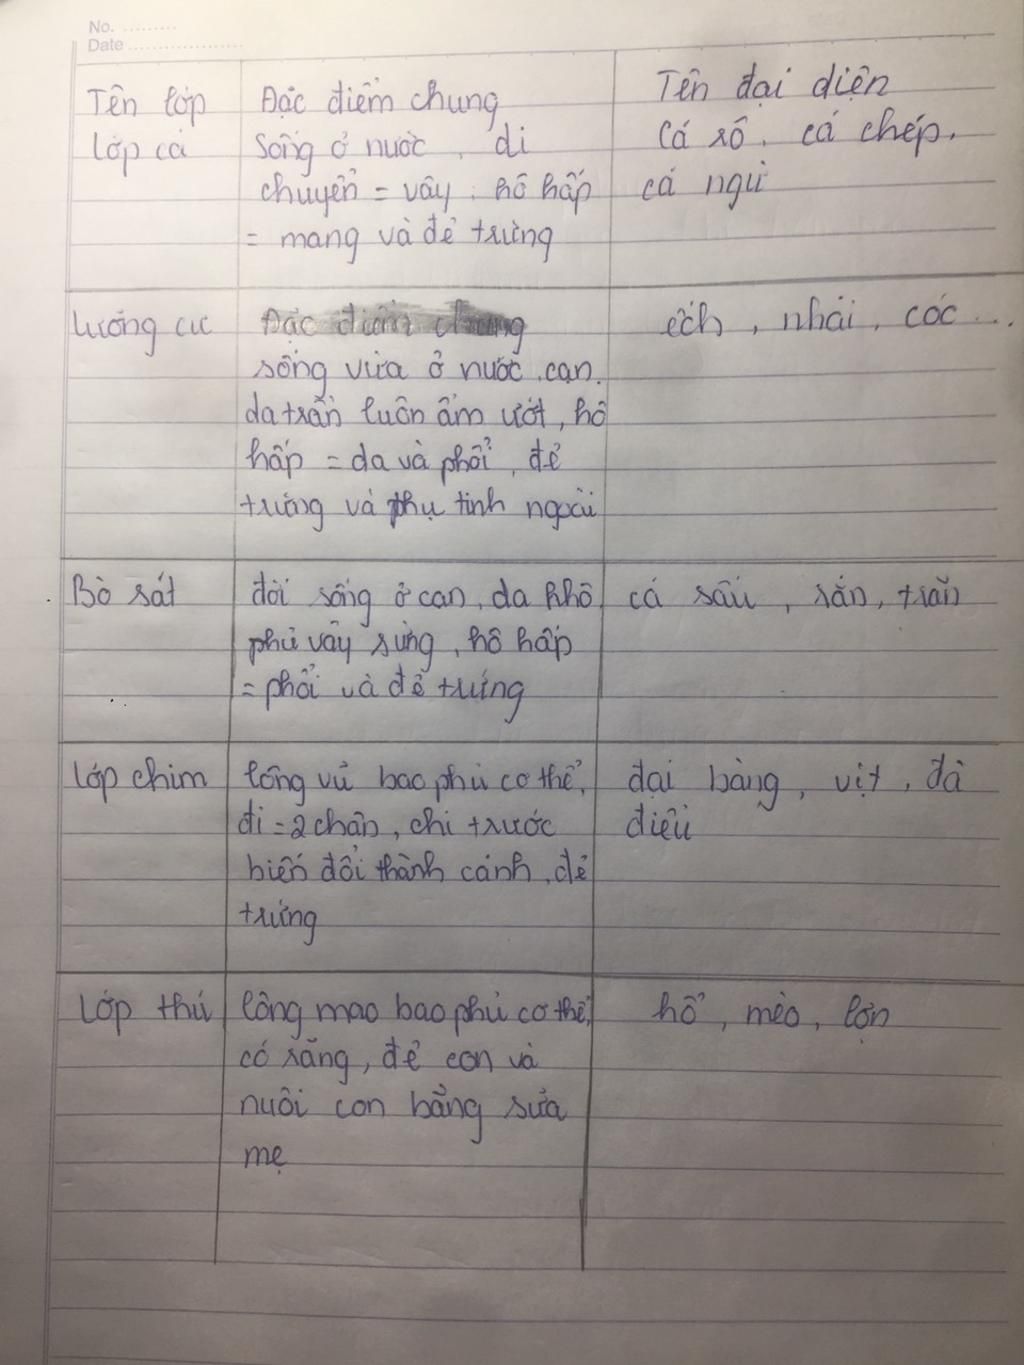 No. .........
Date ...................
Tên lớp Đặc điểm chung Tên đại diện
Lớp cá Sống ở nước, di Cá rô, cá chép,
chuyển = vây, hô hấp cá ngừ
= mang và đẻ trứng
Lưỡng cư Đặc điểm chung ếch, nhái, cóc...
sống vừa ở nước, cạn,
da trần luôn ẩm ướt, hô
hấp = da và phổi, đẻ
trứng và thụ tinh ngoài
Bò sát đời sống ở cạn, da khô, cá sấu, rắn, trăn
phủ vảy sừng, hô hấp
= phổi và đẻ trứng
Lớp chim lông vũ bao phủ cơ thể, đại bàng, vịt, đà
đi = 2 chân, chi trước điểu
biến đổi thành cánh, đẻ
trứng
Lớp thú lông mao bao phủ cơ thể, hổ, mèo, lợn
có răng, đẻ con và
nuôi con bằng sữa
mẹ